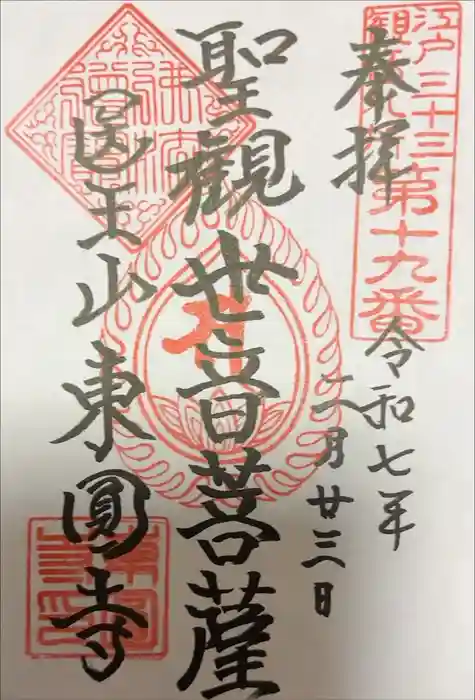 江戸三十三
観音札所
第十九番
奉拝
令和七年
二月廿三日
聖觀世音菩薩
医王山東圓寺